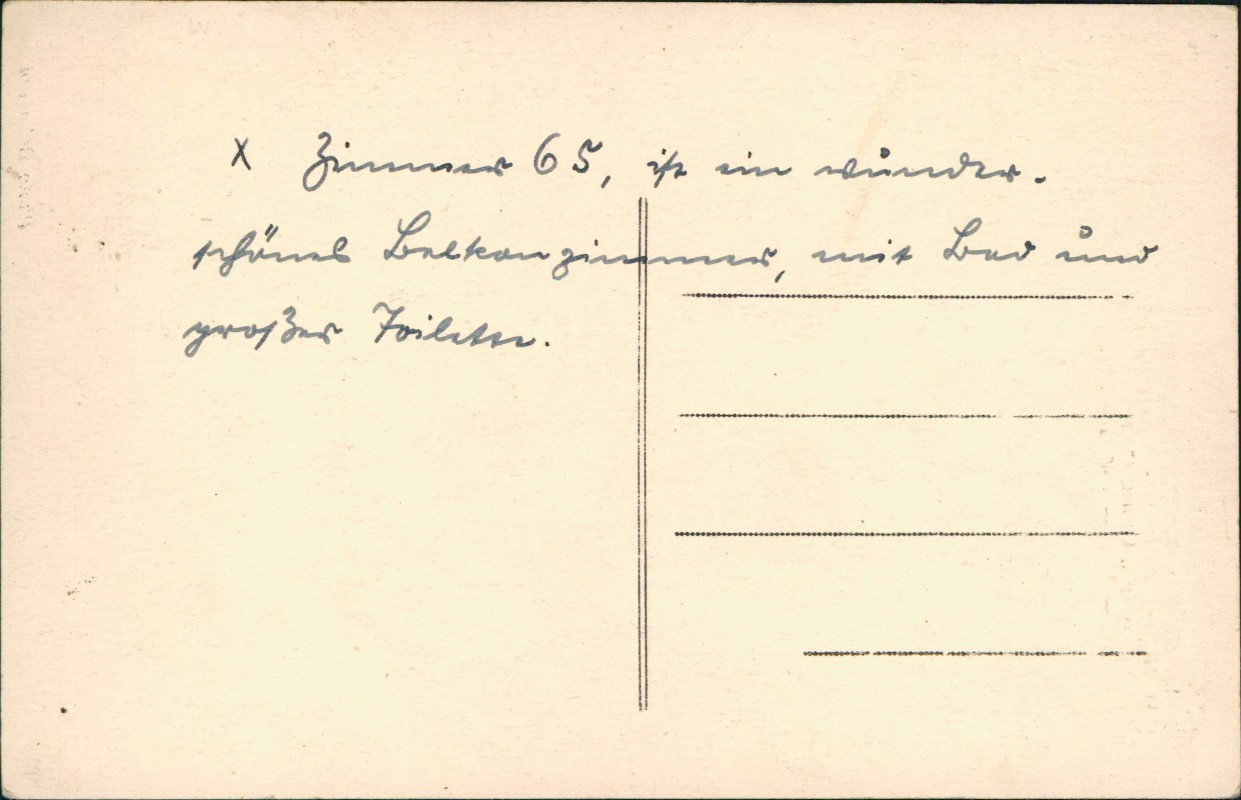 x Zimmer 65, ist ein wunder-
schönes Balkonzimmer, mit Bad und
großer Toilette.